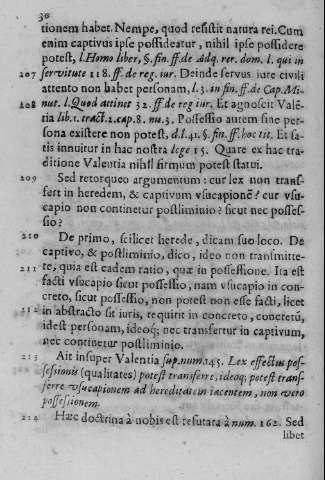 30
tionem habet. Nempe, quod resistit natura rei. Cum
enim captivus ipse possideatur, nihil ipse possidere
potest, l. Homo liber, §. fin. ff. de Adq. rer. dom. l. qui in
207 servitute 118. ff. de reg. iur. Deinde servus iure civili
attento non habet personam, l. 3. in fin. ff. de Cap. Mi-
208 nut. l. Quod attinet 32. ff. de reg iur. Et agnoscit Valē-
tia lib. 1. tract. 2. cap. 8. nu. 3. Possessio autem sine per-
sona existere non potest, d. l. 41. §. fin. ff. hoc tit. Et sa-
tis innuitur in hac nostra lege 15. Quare ex hac tra-
ditione Valentia nihil firmum potest statui.
209 Sed retorqueo argumentum: cur lex non trans-
fert in heredem, & captivum vsucapionē? cur vsu-
capio non continetur postliminio? sicut nec posses-
sio?
210 De primo, scilicet herede, dicam suo loco. De
captivo, & postliminio, dico, ideo non transmitte-
211 re, quia est eadem ratio, quæ in possessione. Ita est
facti vsucapio sicut possessio, nam vsucapio in con-
creto, sicut possessio, non potest non esse facti, licet
212 in abstracto sit iuris, requirit in concreto, concretū,
idest personam, ideoq; nec transfertur in captivum,
nec continetur postliminio.
213 Ait insuper Valentia sup. num. 145. Lex effectus pos-
sessionis (qualitates) potest transferre, ideoq; potest trans-
ferre vsucapionem ad hereditatem iacentem, non vero
possessionem.
214 Hæc doctrina à nobis est refutata à num. 162. Sed
libet